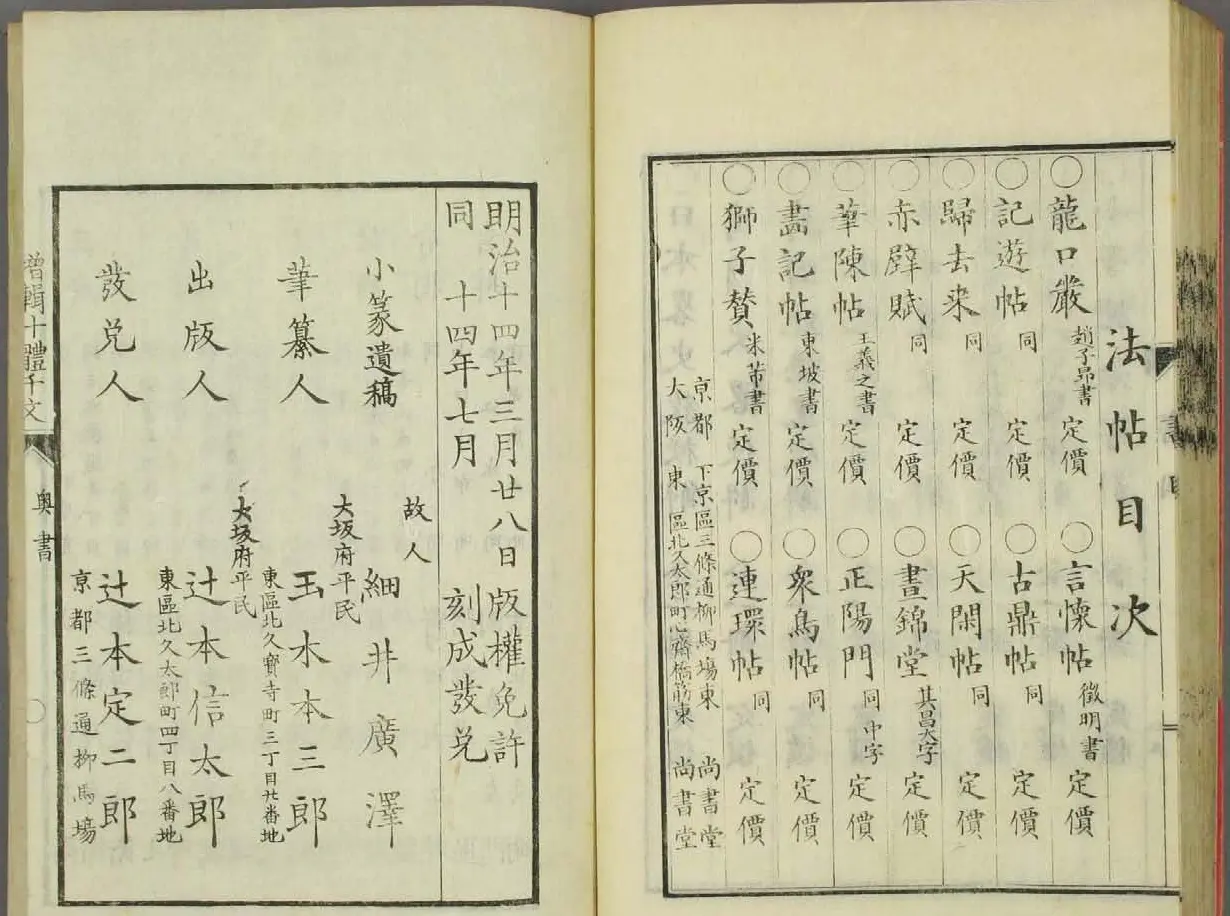 法帖目次
○龍口巖 趙子昂書 定價 ○言懷帖 徴明書 定價
○記遊帖 同 定價 ○古鼎帖 同 定價
○歸去来 同 定價 ○天閑帖 同 定價
○赤壁賦 同 定價 ○晝錦堂 其昌大字 定價
○華陳帖 王羲之書 定價 ○正陽門 同中字 定價
○畵記帖 東坡書 定價 ○衆鳥帖 同 定價
○獅子賛 米芾書 定價 ○連環帖 同 定價
京都 下京區三條通柳馬場東 尚書堂
大阪 東區北久太郎町心齋橋筋東 尚書堂
明治十四年三月廿八日版權免許
同 十四年七月 刻成發兌
小篆遺稿 故人 細井廣澤
筆纂人 大坂府平民 玉木本三郎
東區北久寳寺町三丁目廿番地
出版人 大坂府平民 辻本信太郎
東區北久太郎町四丁目八番地
發兌人 辻本定二郎
京都三條通柳馬場
増輯十體千文 奥書